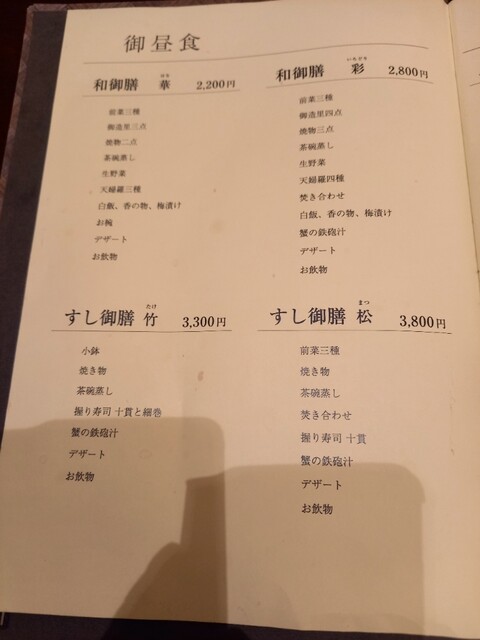 御昼食
和御膳 華 はな 2,200円
前菜三種
御造里三点
焼物二点
茶碗蒸し
生野菜
天婦羅三種
白飯、香の物、梅漬け
お椀
デザート
お飲物
和御膳 彩 いろどり 2,800円
前菜三種
御造里四点
焼物三点
茶碗蒸し
生野菜
天婦羅四種
焚き合わせ
白飯、香の物、梅漬け
蟹の鉄砲汁
デザート
お飲物
すし御膳 竹 たけ 3,300円
小鉢
焼き物
茶碗蒸し
握り寿司 十貫と細巻
蟹の鉄砲汁
デザート
お飲物
すし御膳 松 まつ 3,800円
前菜三種
焼き物
茶碗蒸し
焚き合わせ
握り寿司 十貫
蟹の鉄砲汁
デザート
お飲物